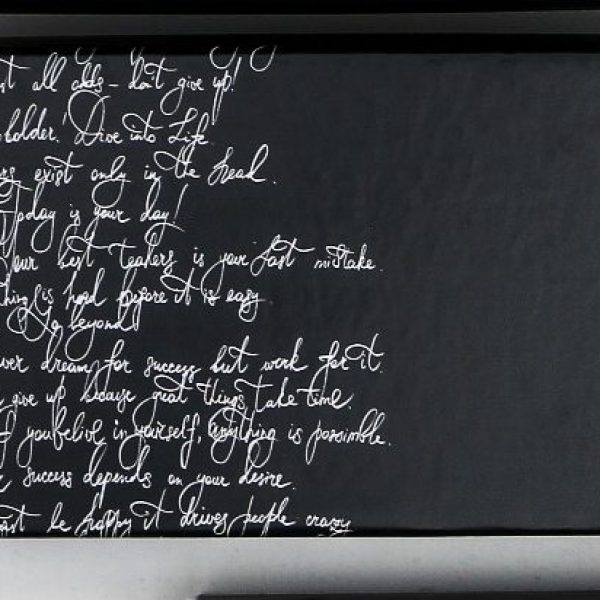 all odds - don't give up!
bolder! Dive into Life
exist only in the head.
Today is your day!
Your best teahers is your last mistake.
thing is hard before it is easy
Go beyond!
dream for success but work for it.
give up because great things take time.
If you belive in yourself, anything is possimble.
success depends on your desire.
Just be happy it drives people crazy